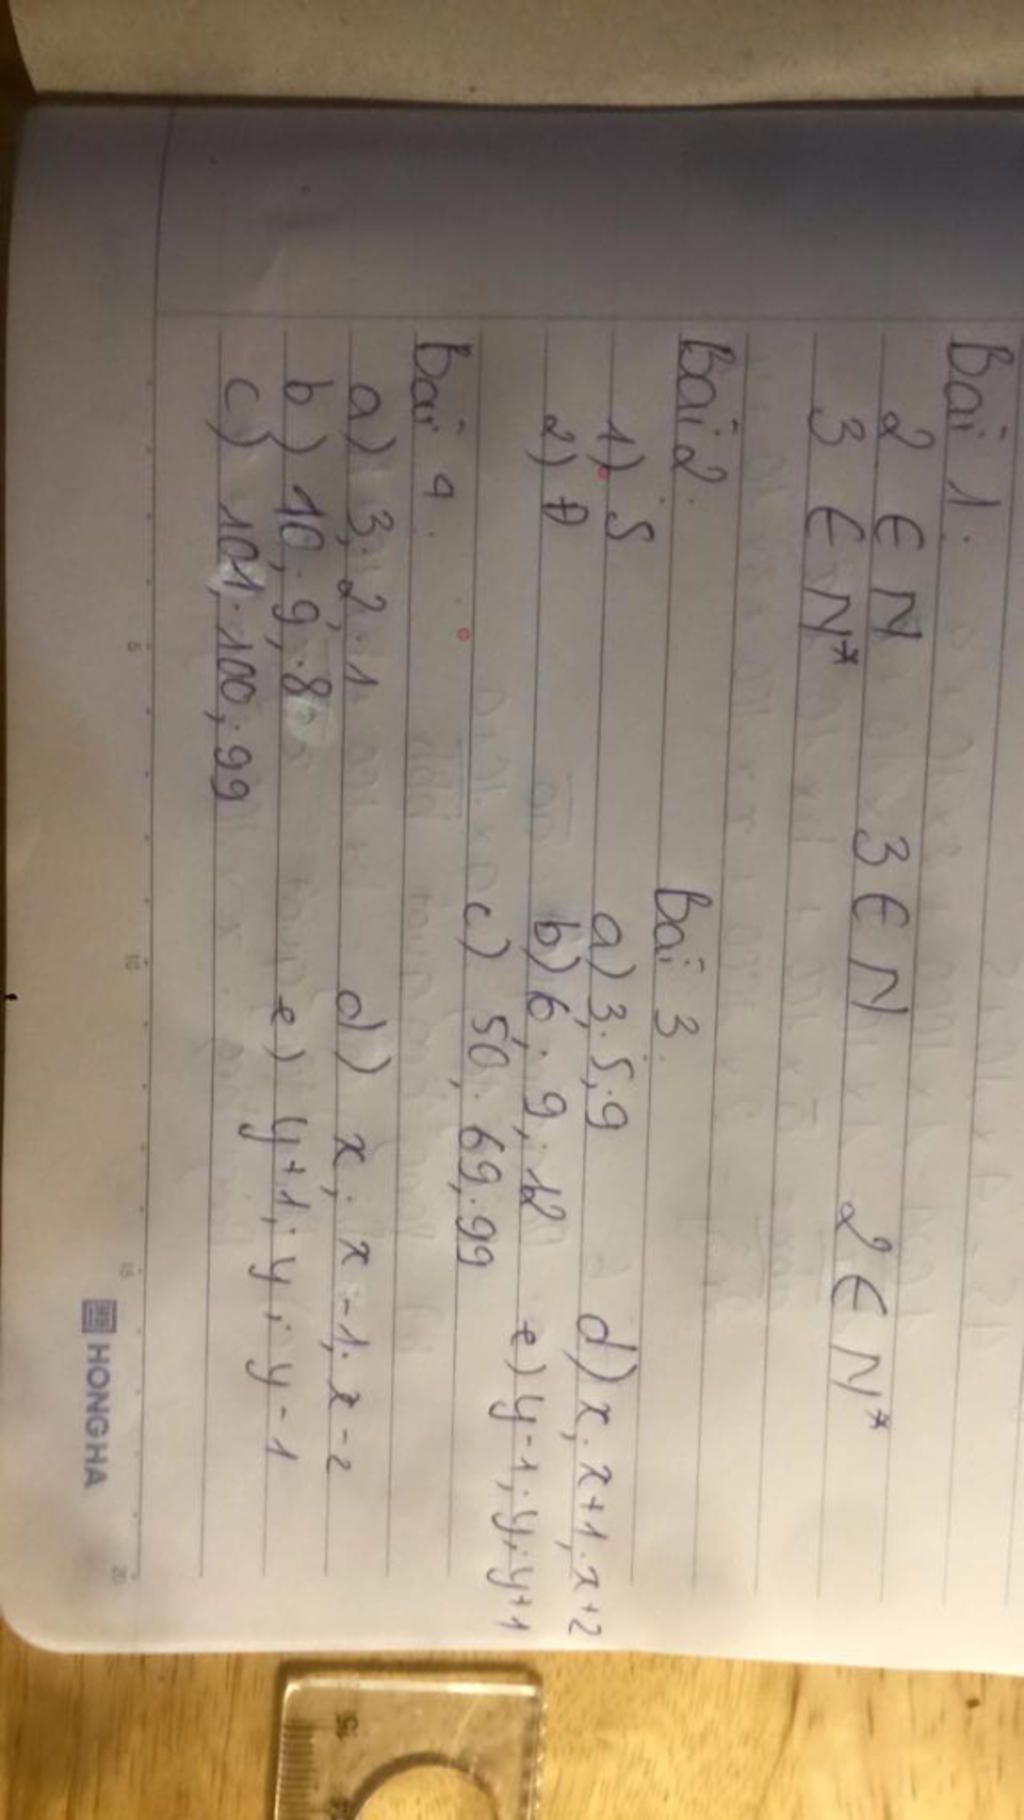 Bài 1.
2 ∈ N 3 ∈ N 2 ∈ N*
3 ∈ N*
Bài 2. Bài 3.
1) S a) 3; 5; 9 d) x; x+1; x+2
2) Đ b) 6; 9; 12 e) y-1; y; y+1
c) 50; 69; 99
Bài 4.
a) 3; 2; 1 d) x; x-1; x-2
b) 10; 9; 8 e) y+1; y; y-1
c) 101; 100; 99
5 10 15 20
HONG HA